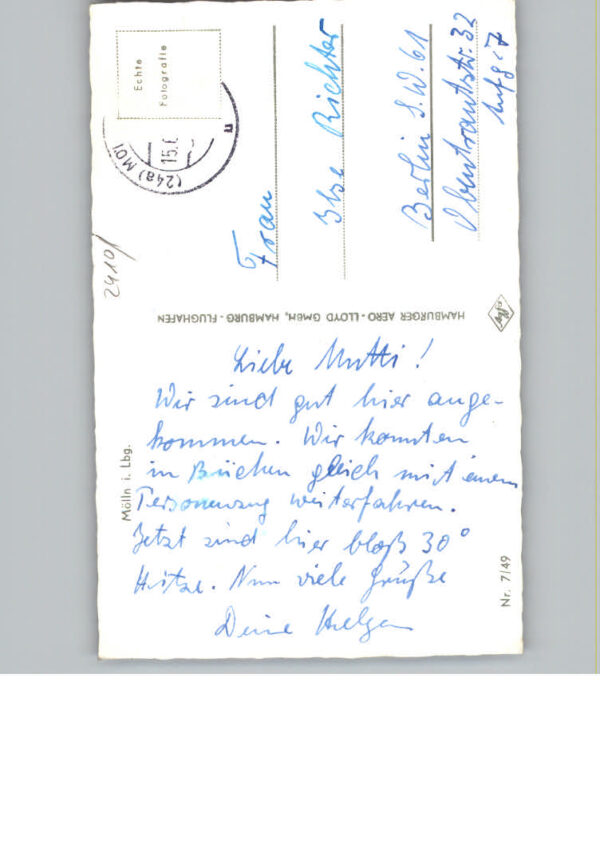 Echte
Fotografie
(24a) MÖL
15.6
n
Frau
Ilse Richter
Berlin S.W. 61
Obentrautstr. 32
Aufg.
2410/
HAMBURGER AERO-LLOYD GMBH, HAMBURG-FLUGHAFEN
Agfa
Mölln i. Lbg.
Liebe Mutti!
Wir sind gut hier ange-
kommen. Wir konnten
in Büchen gleich mit einem
Personenzug weiterfahren.
Jetzt sind hier bloß 30°
Hitze. Nun viele Grüße
Deine
Nr. 7/49